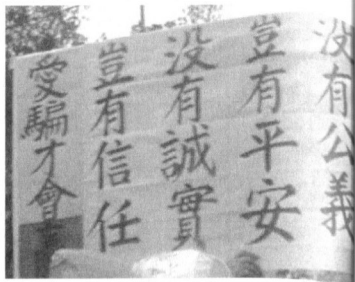 没有公義
豈有平安
没有誠實
豈有信任
愛騙才會